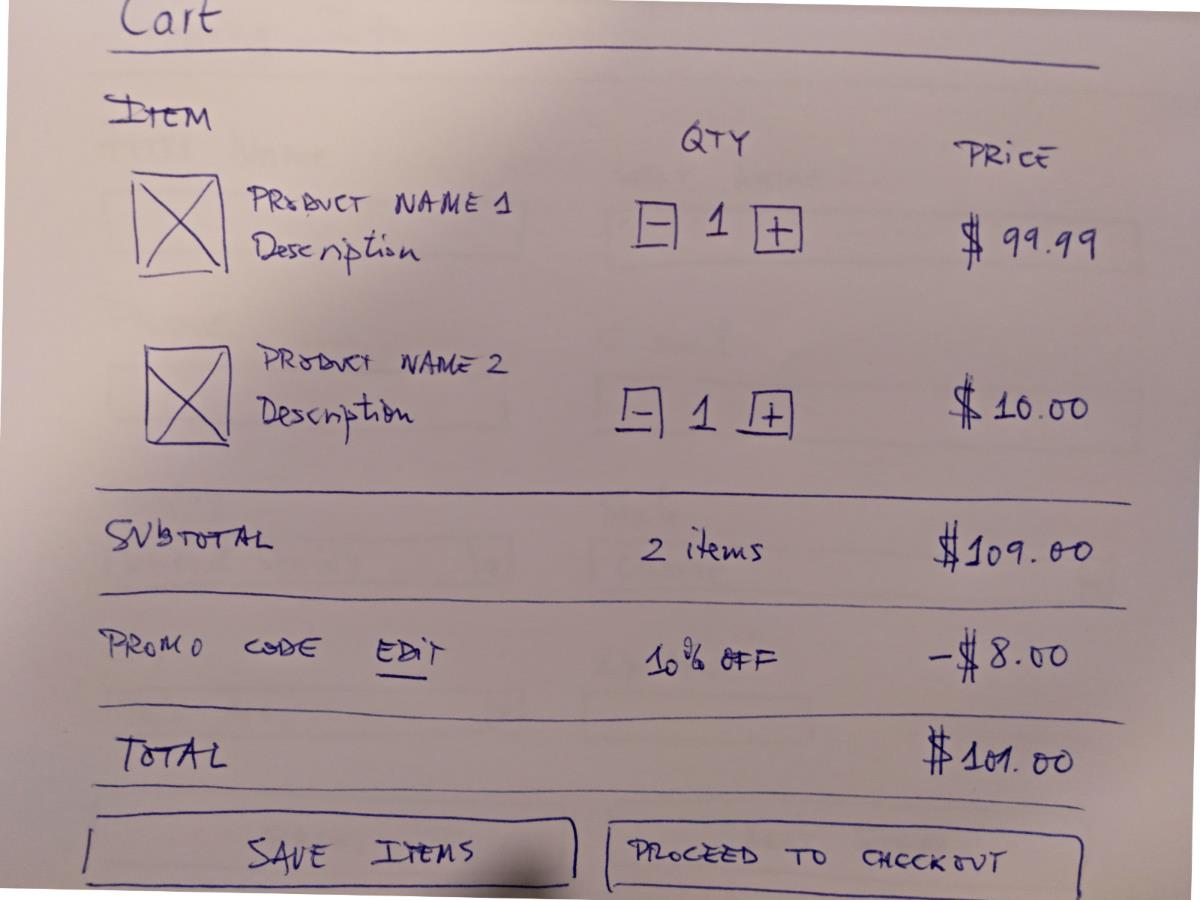 Cart
ITEM QTY PRICE
PRODUCT NAME 1
Description
- 1 + $ 99.99
PRODUCT NAME 2
Description
- 1 + $ 10.00
SUBTOTAL 2 items $109.00
PROMO CODE EDIT 10% OFF -$8.00
TOTAL $101.00
SAVE ITEMS PROCEED TO CHECKOUT